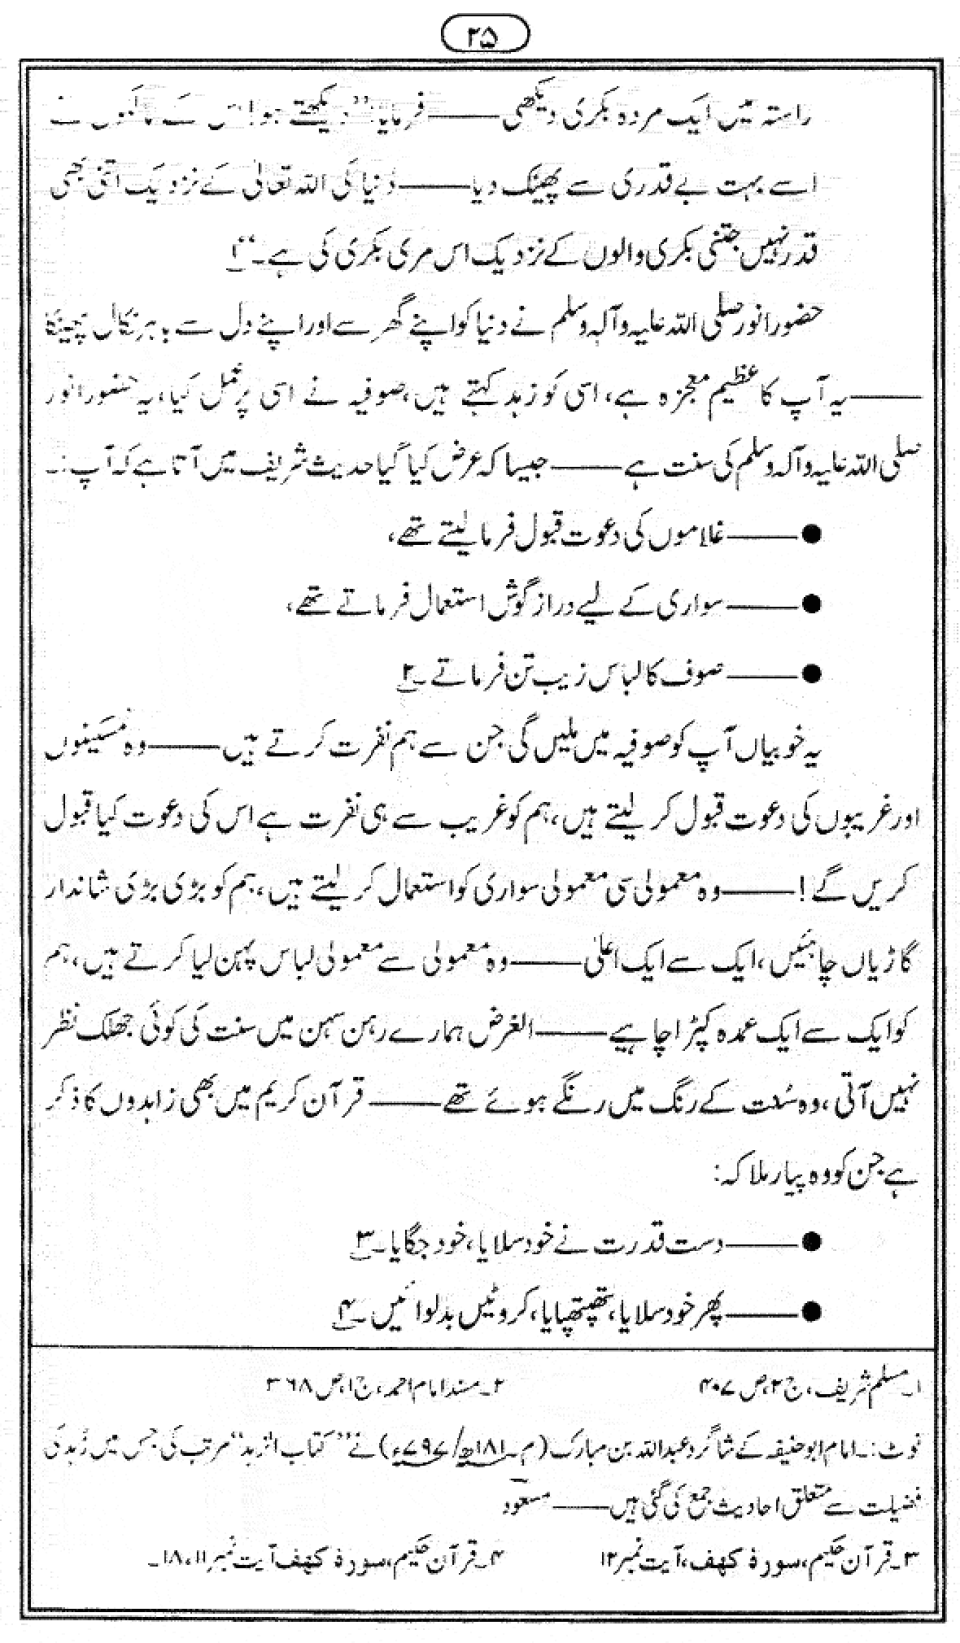 ۲۵
راستہ میں ایک مردہ بکری دیکھی——فرمایا ”دیکھتے ہو! اس کے مالکوں نے
اسے بہت بے قدری سے پھینک دیا——دُنیا کی اللہ تعالیٰ کے نزدیک اتنی بھی
قدر نہیں جتنی بکری والوں کے نزدیک اس مری بکری کی ہے۔“۱
حضور انور صلی اللہ علیہ وآلہ وسلم نے دنیا کو اپنے گھر سے اور اپنے دل سے باہر نکال پھینکا
——یہ آپ کا عظیم معجزہ ہے، اسی کو زہد کہتے ہیں، صوفیہ نے اسی پر عمل کیا، یہ حضور انور
صلی اللہ علیہ وآلہ وسلم کی سنت ہے——جیسا کہ عرض کیا گیا حدیث شریف میں آتا ہے کہ آپ:۔
●——غلاموں کی دعوت قبول فرما لیتے تھے،
●——سواری کے لیے دراز گوش استعمال فرماتے تھے،
●——صوف کا لباس زیب تن فرماتے۔۲
یہ خوبیاں آپ کو صوفیہ میں ملیں گی جن سے ہم نفرت کرتے ہیں——وہ مسکینوں
اور غریبوں کی دعوت قبول کر لیتے ہیں، ہم کو غریب سے ہی نفرت ہے اس کی دعوت کیا قبول
کریں گے!——وہ معمولی سی معمولی سواری کو استعمال کر لیتے ہیں، ہم کو بڑی بڑی شاندار
گاڑیاں چاہئیں، ایک سے ایک اعلیٰ——وہ معمولی سے معمولی لباس پہن لیا کرتے ہیں، ہم
کو ایک سے ایک عمدہ کپڑا چاہیے——الغرض ہمارے رہن سہن میں سنت کی کوئی جھلک نظر
نہیں آتی، وہ سُنّت کے رنگ میں رنگے ہوئے تھے——قرآن کریم میں بھی زاہدوں کا ذکر
ہے جن کو وہ پیار ملا کہ:
●——دست قدرت نے خود سلایا، خود جگایا۔۳
●——پھر خود سلایا، تھپتھپایا، کروٹیں بدلوائیں۔۴
۱۔ مسلم شریف، ج۲، ص ۴۰۷ ۲۔ مسند امام احمد، ج۱، ص ۳۶۸
نوٹ:۔ امام ابو حنیفہ کے شاگرد عبداللہ بن مبارک (م۔۱۸۱ھ/۷۹۷ء) نے ”کتاب الزہد“ مرتب کی جس میں زُہد کی
فضیلت سے متعلق احادیث جمع کی گئی ہیں——مسعود
۳۔ قرآن حکیم، سورۂ کہف، آیت نمبر ۱۲ ۴۔ قرآن حکیم، سورۂ کہف آیت نمبر ۱۱، ۱۸۔